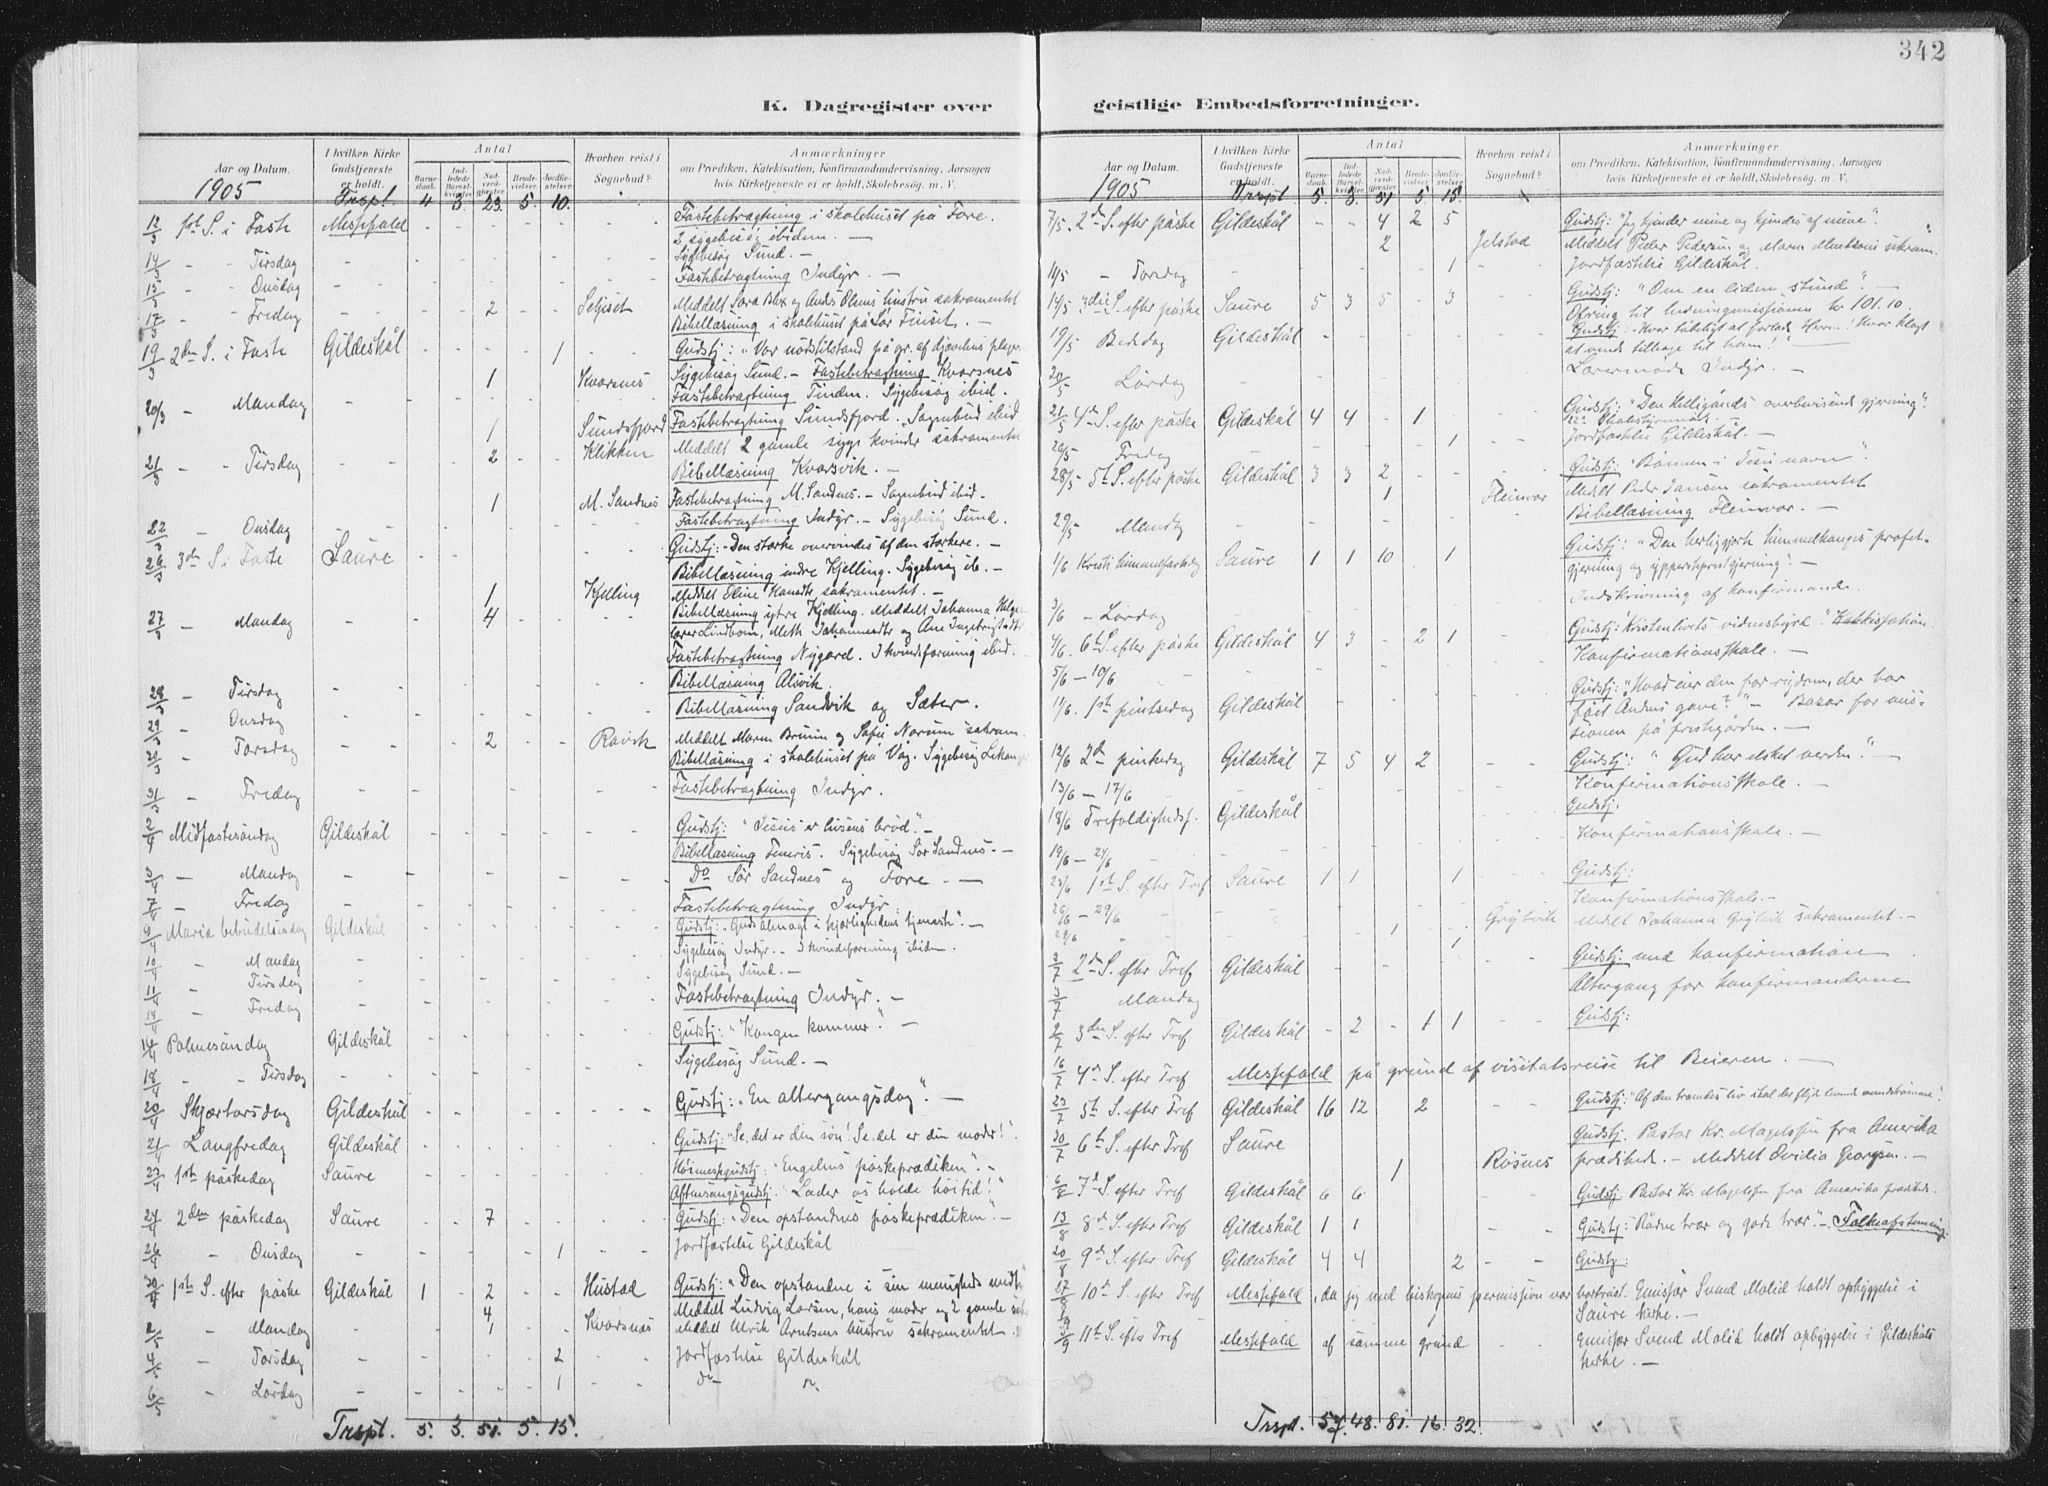 342
K. Dagregister over
Aar og Datum.
1905
I hvilken Kirke Gudstjeneste er holdt.
Antal
Barnedaab. Indledede Barselkvinder. Nadverdgjester Brudevielser. Jordfæstelser
Hvorhen reist i Sognebud?
Anmærkninger
om Prædiken, Katekisation, Konfirmandundervisning, Aarsagen
hvis Kirketjeneste ei er holdt, Skolebesøg. m. V.
Trspt. 4 3. 23. 5. 10.
12/3 1ste S. i Faste Messefald - - - - - Fastebetragtning i skolehuset på Fore.
2 sygebesøg ibidem. —
14/3 - - Tirsdag - - - - - - Sygebesøg Sund. —
15/3 - - Onsdag - - - - - - Fastebetragtning Indyr. —
17/3 - - Fredag - - - 2 - - Selsset Meddelt Sara Blix og Anders Olsens hustru sakramentet
Bibellæsning i skolehuset på Sør Finset. —
19/3 2den S. i Faste Gildeskål - - - - 1 - - Gudstj: "Vor nødstilstand på gr. af djævelens plager
1 Kvarsnes Sygebesøg Sund. — Fastebetragtning Kvarsnes
20/3 - Mandag - - - - - - Fastebetragtning Finden. Sygebesøg ibid.
1 Sundsfjord Fastebetragtning Sundsfjord. Sognebud ibid
21/3 - - Tirsdag - - - 2 - - Klikken Meddelt 2 gamle syge kvinder sakramentet
Bibellæsning Kvarsvik. —
1 M. Sandnes Fastebetragtning M. Sandnes. — Sognebud ibid. —
22/3 - Onsdag - - - - - - Fastebetragtning Indyr. — Sygebesøg Sund.
26/3 3die S. i Faste Saure - - - - - - Gudstj: "Den stærke overvindes af den stærkere. —
Bibellæsning indre Kjelling. Sygebesøg ib. —
1 Kjelling Meddelt Eline Hansdtr sakramentet. —
27/3 - Mandag - - - 4 - - - Bibellæsning ytre Kjelling. Meddelt Johanna
Lærer Lindbom, Meth Johannesdtr og Ane Ingebrigtsdtr
Fastebetragtning Nygård. I kvindeforening ibid.
28/3 - Tirsdag - - - - - - Bibellæsning Alsvik.
29/3 - Onsdag - - - - - - Bibellæsning Sandvik og Sæter.
30/3 - Torsdag - - - 2 - - Ravik Meddelt Maren Bruun og Sofie Norum sakram.
Bibellæsning i skolehuset på Våg. Sygebesøg
31/3 - Fredag - - - - - - Fastebetragtning Indyr.
2/4 Midfastesøndag Gildeskål - - - - - - Gudstj: "Jesus er livsens brød". —
Bibellæsning Teneris. Sygebesøg Sør Sandnes. —
3/4 - Mandag - - - - - - Do Sør Sandnes og Fore —
7/4 - Fredag - - - - - - Fastebetragtning Indyr
9/4 Maria bebudelsesdag Gildeskål - - - - - - Gudstj: "Guds almagt i kjærlighedens tjeneste". —
Sygebesøg Indyr. — I kvindeforening ibidem.
10/4 - Mandag - - - - - - Sygebesøg Sund. —
11/4 - Tirsdag - - - - - -
14/4 - Fredag - - - - - - Fastebetragtning Indyr. —
16/4 Palmesøndag Gildeskål - - - - - - Gudstj: "Kongen kommer". —
18/4 - - Tirsdag - - - - - - Sygebesøg Sund. —
20/4 Skjærtorsdag Gildeskål - - - - - - Gudstj: "En altergangsdag". —
21/4 Langfredag Gildeskål - - - - - - Gudstj: "Se, det er din søn! Se, det er din moder!".
23/4 1ste påskedag Saure - - - - - - Høimessegudstj: "Engelens påskeprædiken". —
Aftensangsgudstj. "Lader os holde høitid!"
24/4 2den påskedag Saure - - 7 - - - Gudstj: "Den opstandnes påskeprædiken". —
26/4 - Onsdag - - - - 1 - Jordfæstelse Gildeskål
30/4 1ste S. efter påske Gildeskål 1 - 2 - - Hustad Gudstj: "Den opstandne i sin menigheds midte"
4 Meddelt Ludvig Larsen, hans moder og 2 gamle
2/5 - Mandag - - 1 Kvarsnes Meddelt Ulrik Arntsens hustru sakramentet
4/5 - Torsdag - - - - 2 - - Jordfæstelse Gildeskål
6/5 - Lørdag - - - - 1 - - do — do
Trspt. 5. 3. 51. 5. 15.
geistlige Embedsforretninger.
Aar og Datum.
1905
I hvilken Kirke Gudstjeneste er holdt.
Antal
Barnedaab. Indledede Barselkvinder. Nadverdgjester Brudevielser. Jordfæstelser.
Hvorhen reist i Sognebud?
Anmærkninger
om Prædiken, Katekisation, Konfirmandundervisning, Aarsagen
hvis Kirketjeneste ei er holdt, Skolebesøg. m. V.
Trspt. 5. 3. 51 5. 15.
7/5. 2den S. efter påske Gildeskål - - 4 2 5 Gudstj: "Jeg kjender mine og kjendes af mine".
2 Jelstad Meddelt Peder Pedersen og Maren Mentsens sakram.
11/5 - Torsdag - - - - 1 - Jordfæstelse Gildeskål.
14/5 3die S. efter påske Saure 5 3 5 - 3 Gudstj: "Om en liden stund". —
Ofring til hedningemissionen kr 101.10.
19/5 Bededag Gildeskål - - - - - - Gudstj: "Hvor tåbeligt at forlade Herren! Hvor klogt
at vende tilbage til ham!" —
20/5 Lørdag - - - - - - Lærermøde Indyr. —
21/5 4de S. efter påske Gildeskål 4 4 - 1 - Gudstj: "Den helligånds overbevisende gjerning".
I Skolestyremøde
26/5 - Fredag - - - - 1 - - Jordfæstelse Gildeskål. —
28/5 5te S. efter påske Gildeskål 3 3 2 - - Gudstj: "Bønnen i Jesu navn".
1 Fleinvær Meddelt Peder Jansen sakramentet
29/5 Mandag - - - - - - Bibellæsning Fleinvær. —
1/6 Kristi himmelfartsdag Saure 1 1 10 - 1 - Gudstj: "Den herliggjorte himmelkonges profetgjerning og ypperstepræstgjerning". —
3/6 - Lørdag - - - - - - Indskrivning af konfirmander.
4/6. 6te S. efter påske Gildeskål 4 3 - 2 1 - - Gudstj: "Kristenlivets vidnesbyrd". Katekisation.
5/6 — 10/6 - - - - - - Konfirmationsskole. —
11/6. 1ste pintsedag Gildeskål Gudstj: "Hvad eier den for rigdom, der har
fået Åndens gave?" — Bazar for missionen på prestegården. —
12/6 2den pintsedag Gildeskål 7 5 4 2 - - Gudstj: "Gud har elsket verden". —
13/6 — 17/6 - Konfirmationsskole. —
18/6 Trefoldighedsf. Gildeskål - - - - - - Gudstj.
19/6 — 24/6 - - Konfirmationsskole. —
25/6 1ste S. efter Tref Saure 1 1 - - 1 - - Gudstj:
26/6 — 29/6 - - - - - Konfirmationsskole. —
29/6 1 Grøtvik Meddelt Johanna Grøtvik sakramentet. —
2/7 2den S. efter Tref Gildeskål - - - - 1 - - Gudstj: med konfirmation
3/7 Mandag - - - - - - Altergang for konfirmanderne
9/7 3die S. efter Tref Gildeskål - 2 - 1 1 - - Gudstj:
16/7 4de S. efter Tref Messefald på grund af visitatsreise til Beieren. —
23/7 5te S. efter Tref Gildeskål 16 12 2 - - Gudstj: "Af den troendes liv skal der flyde levende vandstrømme".
30/7 6te S. efter Tref Saure Gudstj. Pastor Kr. Magelssen fra Amerika
1 Røsnes prædikede. — Meddelt Ovidia Georgsen. —
6/8 7de S. efter Tref Gildeskål 6 6 Gudstj: Pastor Kr. Magelssen fra Amerika prædikede.
13/8 8de S. efter Tref Gildeskål 1 1 - - Gudstj: "Rådne trær og gode trær". — Folkeafstemning
20/8 9de S. efter Tref Gildeskål 4 4 2 - - Gudstj:
27/8 10de S. efter Tref Messefald, da jeg med biskopens permission var bortreist. Emissær Svend Molid holdt opbyggelse i
Saure kirke. —
3/9 11te S. efter Tref Messefald af samme grund - - Emissær Svend Molid holdt opbyggelse i Gildeskåls
kirke. —
Trspt. 57. 48. 81. 16. 32.